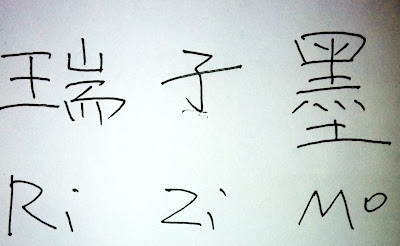 瑞子墨
Ri Zi Mo